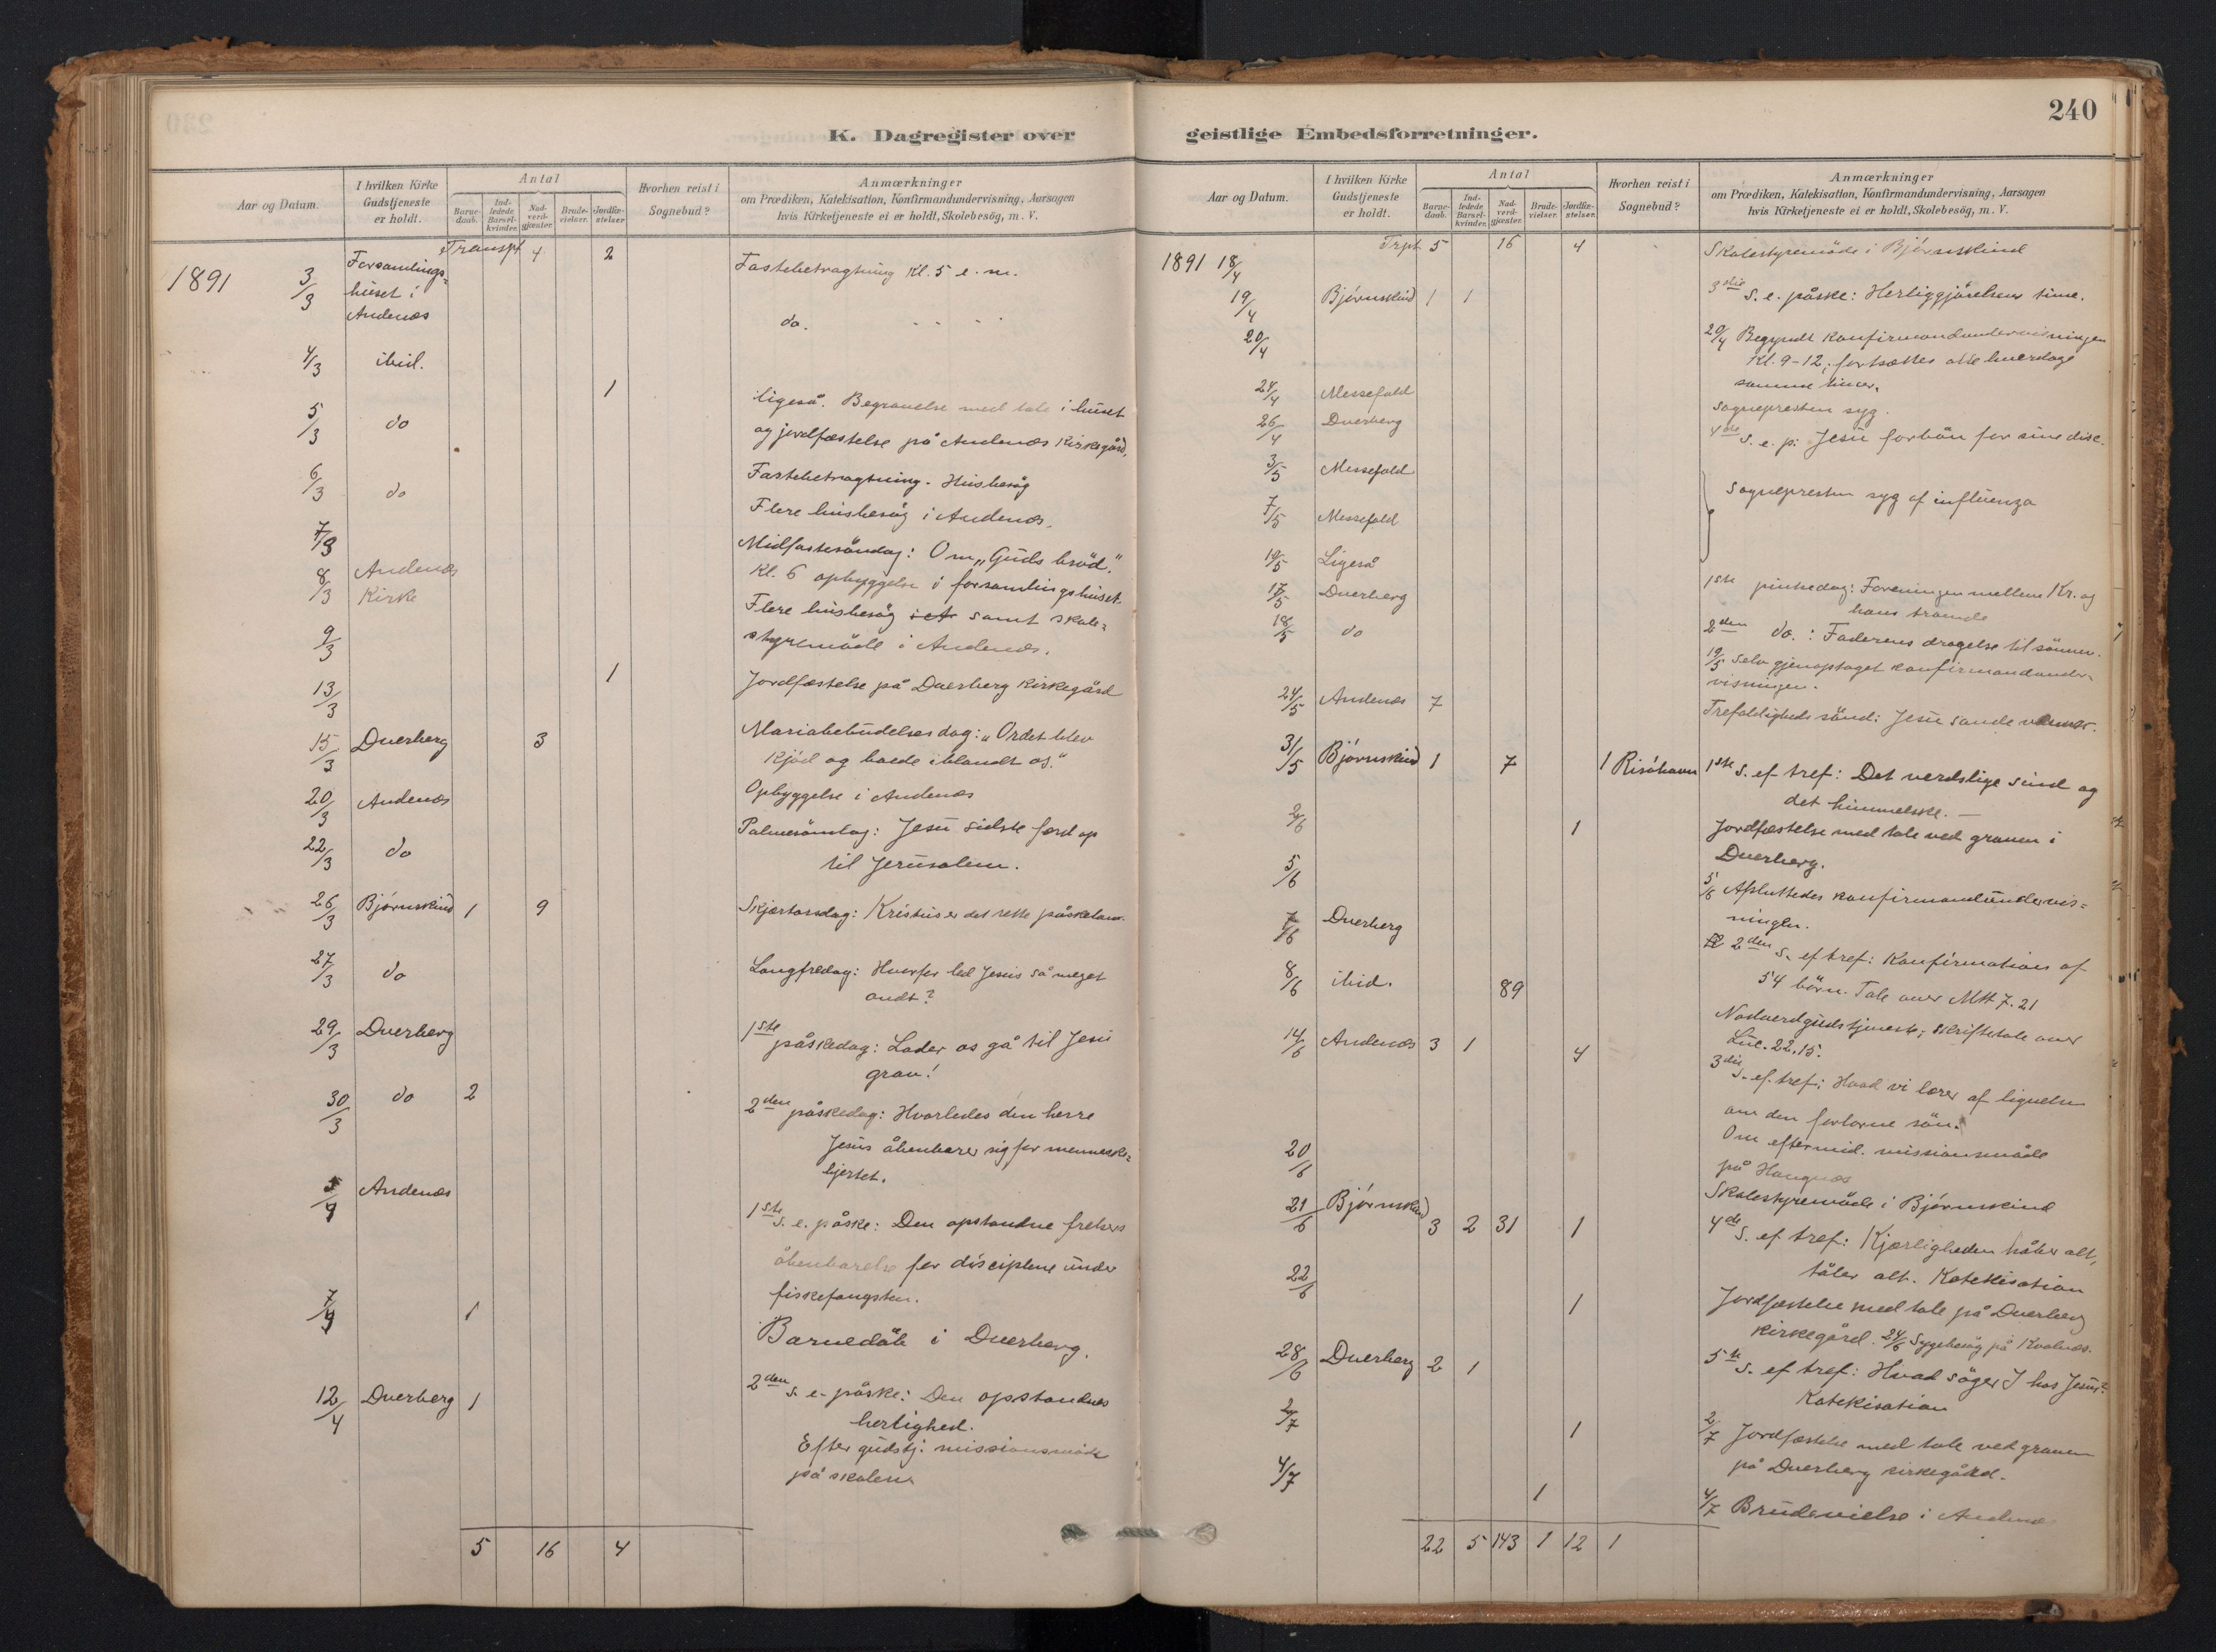 K. Dagregister over
Aar og Datum.
I hvilken Kirke
Gudstjeneste
er holdt.
Antal
Barne-
daab.
Ind-
ledede
Barsel-
kvinder.
Nad-
verd-
gjæster.
Brude-
vielser.
Jordfæ-
stelser.
Hvorhen reist i
Sognebud?
Anmærkninger
om Prædiken, Katekisation, Konfirmandundervisning, Aarsagen
hvis Kirketjeneste ei er holdt, Skolebesög, m. V.
Transpt 4 2
1891 3/3 Forsamlings-
huset i
Andenæs
Fastebetragtning Kl. 5 e. m.
4/3 ibid. do.
5/3 do 1 ligeså. Begravelse med tale i huset
og jordfæstelse på Andenæs Kirkegård,
6/3 do Fastebetragtning. Husbesög
7/3 Flere husbesög i Andenæs.
8/3 Andenæs
Kirke
Midfastesöndag: Om "Guds bröd".
Kl. 6 opbyggelse i forsamlingshuset.
9/3 Flere husbesög i A samt skole-
styremöde i Andenæs.
13/3 1 Jordfæstelse på Dverberg Kirkegård
15/3 Dverberg 3 Mariabebudelses dag: "Ordet blev
Kjöd og boede iblandt os."
20/3 Andenæs Opbyggelse i Andenæs
22/3 do Palmesöndag: Jesu sidste færd op
til Jerusalem.
26/3 Bjørnskind 1 9 Skjærtorsdag: Kristus er det rette påskelam.
27/3 do Langfredag: Hvorfor led Jesus så meget
ondt?
29/3 Dverberg 1ste påskedag: Lader os gå til Jesu
grav!
30/3 do 2 2den påskedag: Hvorledes den herre
Jesus åbenbarer sig for menneske-
hjertet.
5/4 Andenæs 1ste s. e. påske: Den opstandne frelsers
åbenbarelse for disciplene under
fiskefangsten.
7/4 1 Barnedåb i Dverberg.
12/4 Dverberg 1 2den s. e. påske: Den opstandnes
herlighed.
Efter gudstj. missionsmöde
på skolen
5 16 4
240
geistlige Embedsforretninger.
Aar og Datum.
I hvilken Kirke
Gudstjeneste
er holdt.
Antal
Barne-
daab.
Ind-
ledede
Barsel-
kvinder.
Nad-
verd-
gjæster.
Brude-
vielser.
Jordfæ-
stelser.
Hvorhen reist i
Sognebud?
Anmærkninger
om Prædiken, Katekisation, Konfirmandundervisning, Aarsagen
hvis Kirketjeneste ei er holdt, Skolebesög, m. V.
Trpt 5 16 4
1891 18/4 Skolestyremöde i Bjørnskind
19/4 Bjørnskind 1 1 3die s. e. påske: Herliggjörelsens time.
20/4 20/4 Begyndt konfirmandundervisningen
Kl. 9-12; fortsættes alle hverdage
samme timer.
24/4 Messefald sognepresten syg.
26/4 Dverberg 4de s. e. p: Jesu forbön for sine disc.
3/5 Messefald
7/5 Messefald Sognepresten syg af influenza
10/5 Ligeså
17/5 Dverberg 1ste pintsedag: Foreningen mellem Kr. og
hans troende
18/5 do 2den do. : Faderens dragelse til sönnen.
19/5 selv gjenoptaget konfirmandunder-
visningen.
24/5 Andenæs 7 Trefoldigheds sönd: Jesu sande venner.
31/5 Bjørnskind 1 7 1 Risöhavn 1ste s. ef tref: Det verdslige sind og
det himmelske. —
2/6 1 Jordfæstelse med tale ved graven i
Dverberg.
5/6 5/6 Afsluttedes konfirmandundervis-
ningen.
7/6 Dverberg 2den s. ef tref: Konfirmation af
54 börn. Tale over Mtt 7. 21
8/6 ibid. 89 Nadverdgudstjeneste; skriftetale over
Luc. 22, 15.
14/6 Andenæs 3 1 4 3die s. ef. tref: Hvad vi lærer af lignelsen
om den fortorne sön.
Om eftermid. missionsmöde
på Haugnæs
20/6 Skolestyremöde i Bjørnskind
21/6 Bjørnskind 3 2 31 1 4de s. ef tref: Kjærligheden håber alt,
tåler alt. Katekisation
22/6 1 Jordfæstelse med tale på Dverberg
kirkegård. 24/6 Sygebesög på Kvalnæs.
28/6 Dverberg 2 1 5te s. ef tref: Hvad söger I hos Jesus?
Katekisation
2/7 1 2/7 Jordfæstelse med tale ved graven
på Dverberg kirkegård.
4/7 1 4/7 Brudevielse i Andenæs
22 5 143 1 12 1